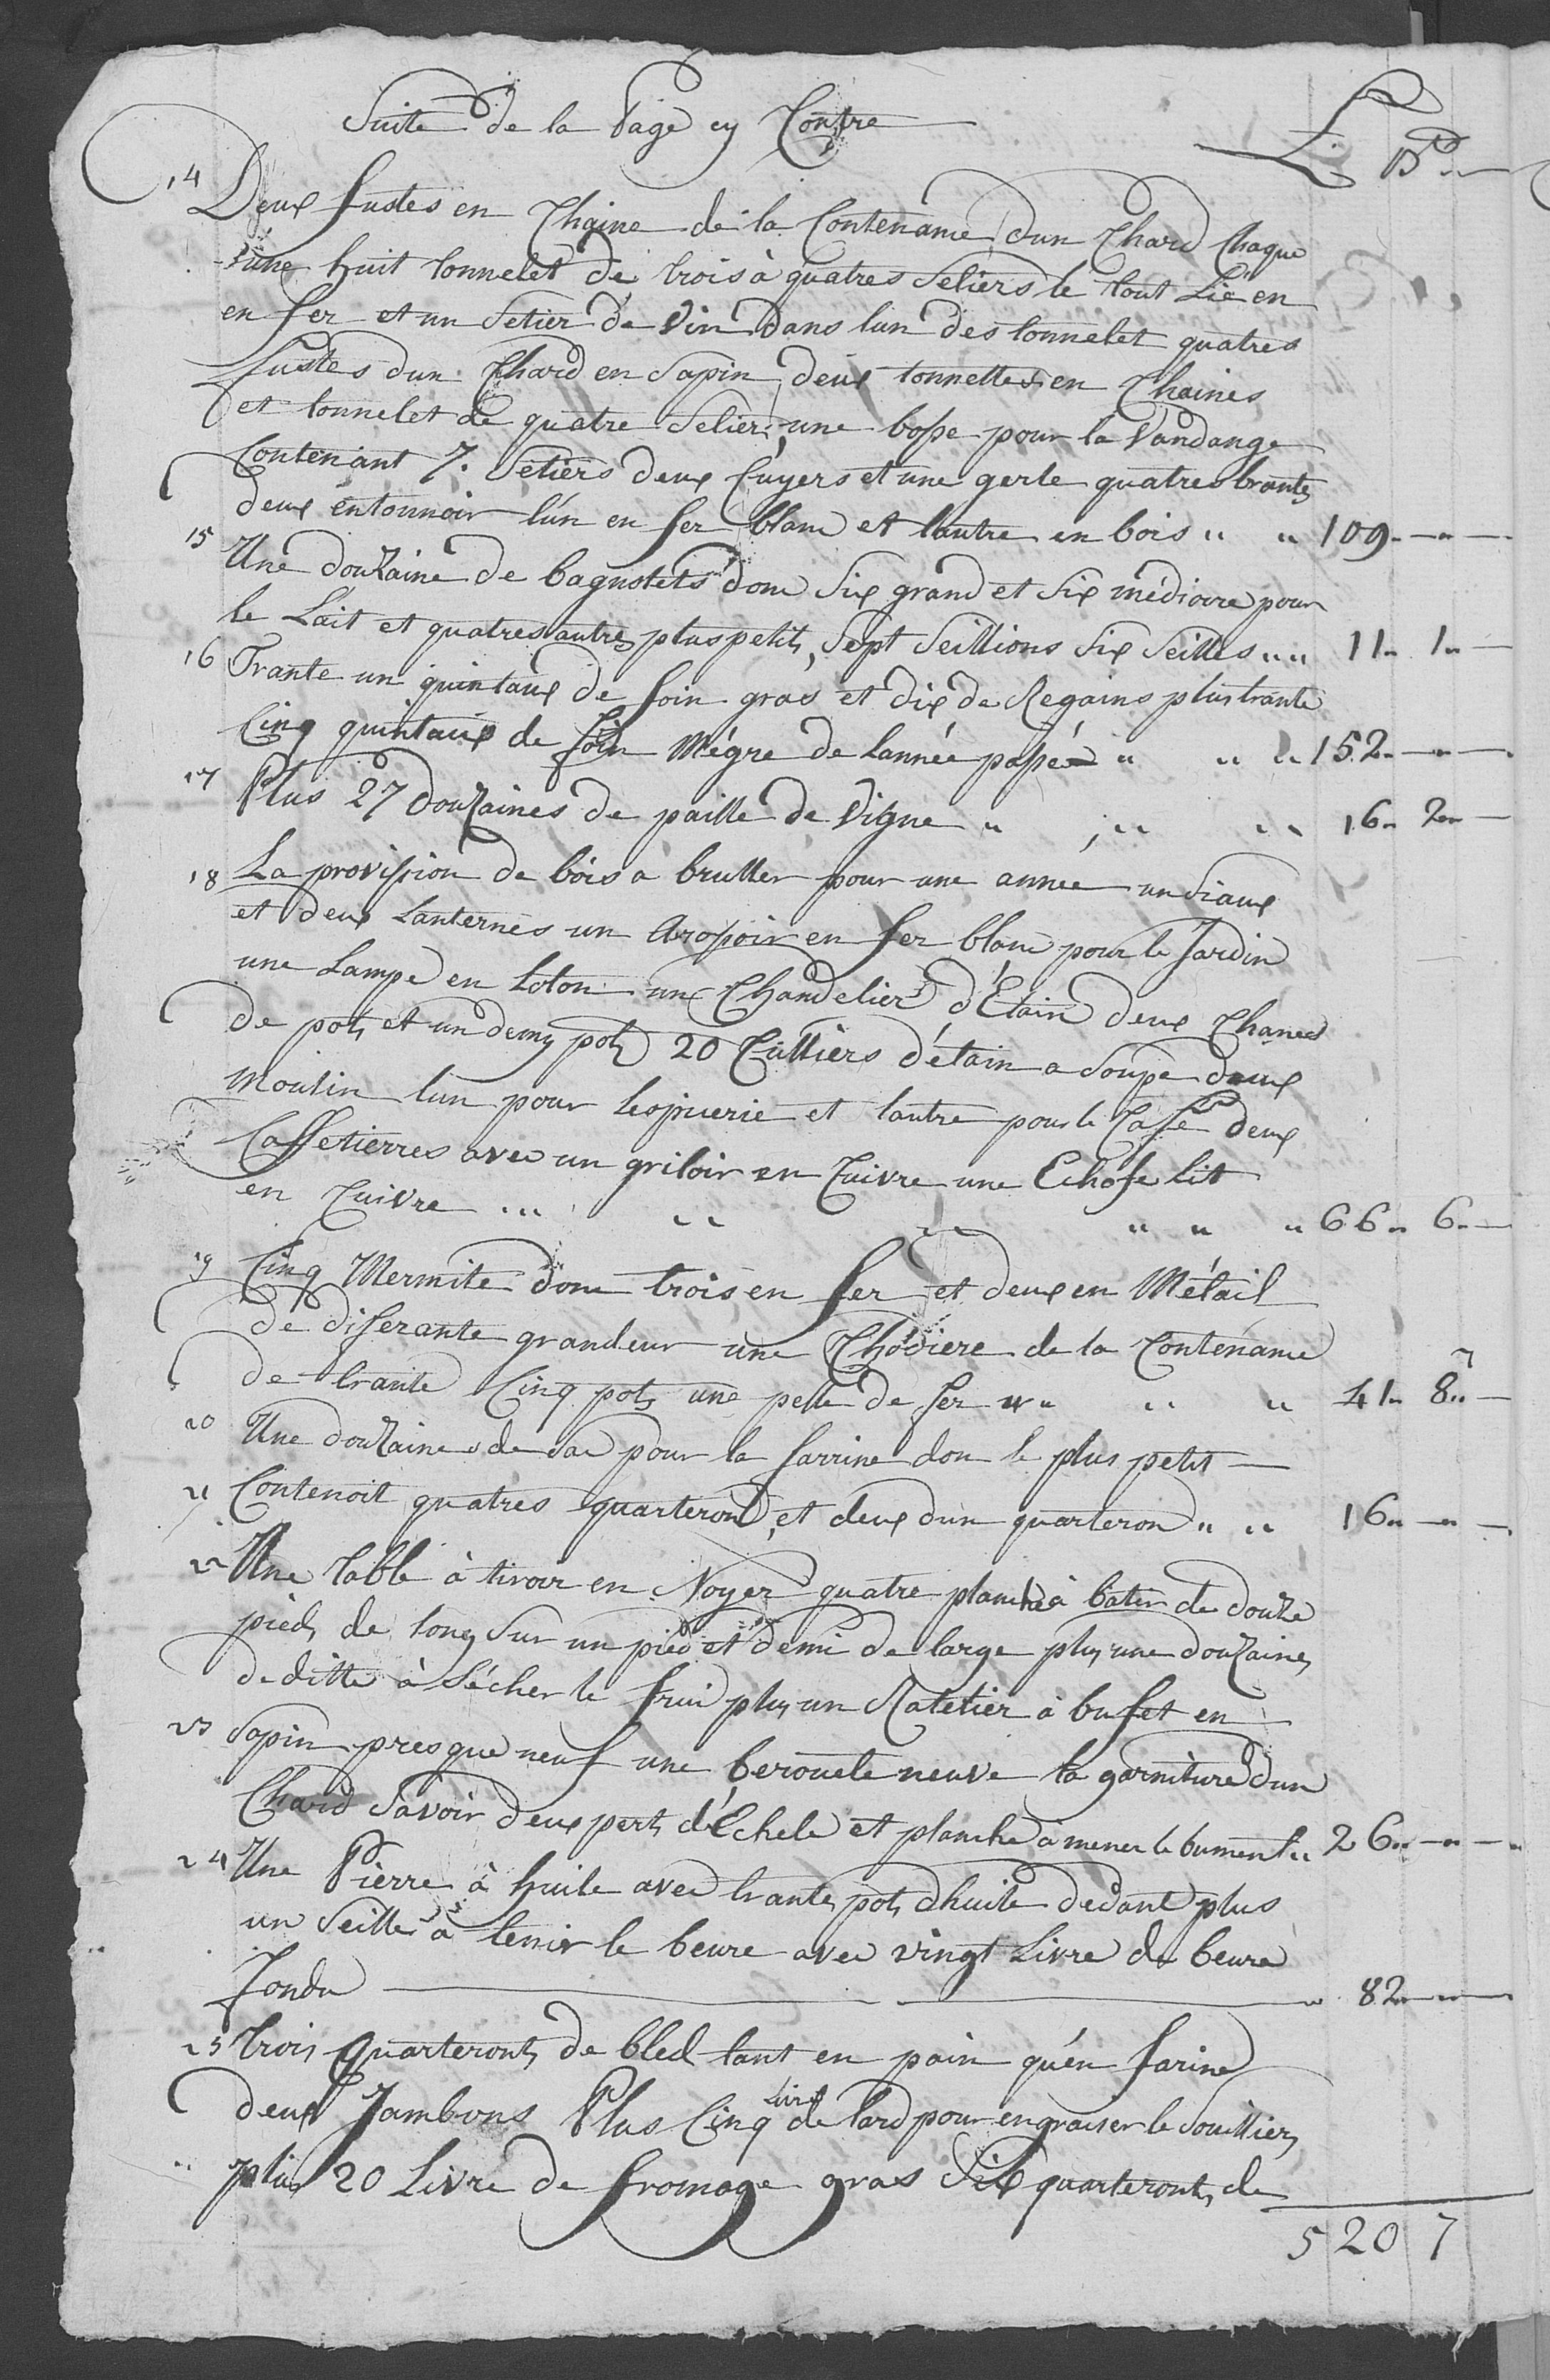 Suite de la Page cy Contre
L. B.
14 Deux fustes en Chaine de la Contenance dun Chard Chaque
une huit tonnelet de trois à quatres Setiers le tout Lié en
en fer et un Setier de Vin dans lun des tonnelet quatres
fustes dun Chard en Sapin deux tonnettes en Chaines
et tonnelet de quatre Setier, une bosse pour la Vandange
Contenant 7. Setiers deux Cuyers et une gerle quatres brants
deux entonnoir lún en fer blanc et lautre en bois " " 109. — " —
15 Une douzaine de bagnolets donc Six grand et Six médiocre pour
le Lait et quatres autres plus petits, Sept Seillions Six Seilles " " 11 " 1 " —
16 Trante un quintaux de foin gras et dix de Regains plus trante
Cinq quintaux de foin Mégre de lannée passée " " " 152 " — " —
17 Plus 27 douzaines de paille de Vigne " " " 16 " 2 " —
18 La provission de bois a brutter pour une année un Siaux
et deux Lanternes un Arosoir en fer blanc pour le Jardin
une Lampe en Loton un Chandelier d'Etain deux Channes
de pots et un demy pots 20 Cülliers d'étain a Soupe deux
Moulin lun pour Lespiuerie et lautre pour le Café deux
Caffetierres avec un griloir en Cuivre une Echofe lit
en Cuivre " " " " " " 66 " 6 " —
19 Cinq Mermite donc trois en fer et deux en Métail
de diferante grandeur une Chódiere de la Contenance
de trante Cinq pots une pelle de fer " " " 41 " 8 " —
20 Une douzaine de Sac pour la farrine don le plus petit —
21 Contenoit quatres quarteront, et deux dun quarteron " " 16 " — " —
22 Une table à tiroir en Noyer quatre planche à bater de douze
pieds de long Sur un pied et demi de large plus une douzaine
de ditte à Sécher le fruit plus un Ratelier à bufet en
23 Sapin presque neuf une berouete neuve la garniture dun
Chard Savoir deux perts d'Echele et planche a mener le bument " 26 " — " —
24 Une Pierre à huile avec trante pots dhuile dedant plus
un Seille à tenir le beure avec vingt Livre de beure
fondu — 82 " — " —
25 Trois Quarteronts de bled tant en pain qu'én farine
deux Jambons Plus Cinq Livre de lard pour engraiser le Souilliers
plus 20 Livre de fromage gras Six quarteronts de
520 7